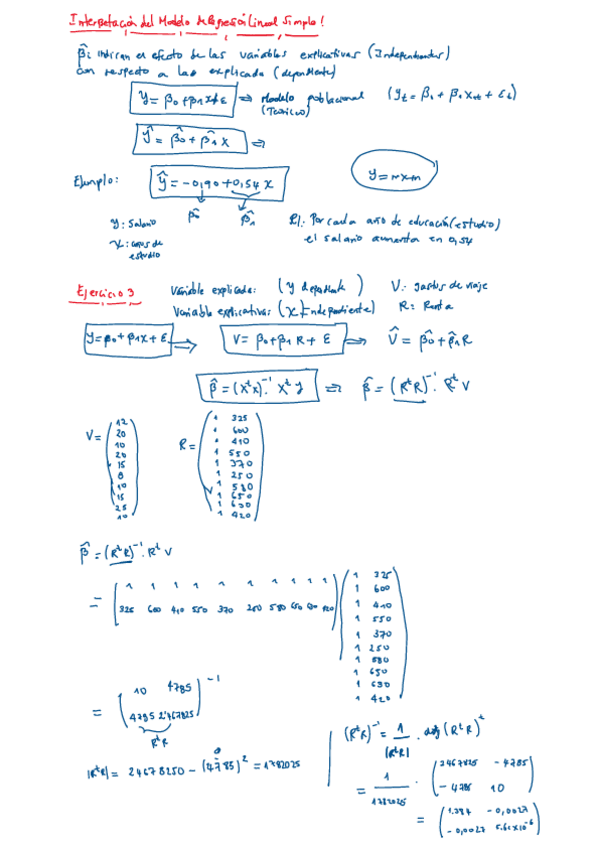 Interpretación del Modelo de Regresión Lineal Simple!
β̂: indican el efecto de las variables explicativas (Independientes)
con respecto a las explicada (dependiente)
y = β0 + β1x + ε ⇒ Modelo poblacional (Teórico) (yt = β1 + β2 x2t + εt)
ŷ = β̂0 + β̂1 x ⇒
Ejemplo: ŷ = -0,90 + 0,54 x
y = mx+n
β̂0 β̂1
y: Salario
x: años de estudio
R/.: Por cada año de educación (estudio)
el salario aumenta en 0,54
Ejercicio 3 Variable explicada: (y dependiente) V: gastos de viaje
Variable explicativa: (x Independiente) R: Renta
y = β0 + β1x + ε ⇒ V = β0 + β1 R + ε ⇒ V̂ = β̂0 + β̂1 R
β̂ = (XᵗX)⁻¹. Xᵗ y ⇒ β̂ = (RᵗR)⁻¹. Rᵗ V
V = R =
12 1 325
20 1 600
10 1 410
20 1 550
15 1 370
8 1 250
10 1 580
15 1 650
25 1 630
10 1 420
β̂ = (RᵗR)⁻¹. Rᵗ V
= 1 1 1 1 1 1 1 1 1 1
325 600 410 550 370 250 580 650 630 420
1 325
1 600
1 410
1 550
1 370
1 250
1 580
1 650
1 630
1 420
= (10 4785
4785 2467825)⁻¹
RᵗR
|RᵗR| = 24678250 - (4785)² = 1782025
(RᵗR)⁻¹ = 1/|RᵗR| . adj (RᵗR)ᵗ
= 1/1782025 . (2467825 -4785
-4785 10)
= (1.384 -0,0027
-0,0027 5.61x10⁻⁶)